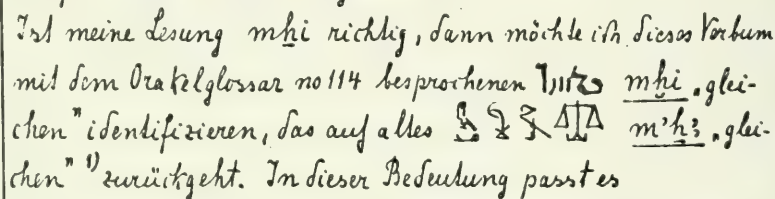 Ist meine Lesung mḫi richtig, dann möchte ich dieses Verbum
mit dem Orakelglossar no 114 besprochenen mḫi „glei-
chen" identifizieren, das auf altes m'ḫꜣ „glei-
chen" ¹⁾ zurückgeht. In dieser Bedeutung passt es